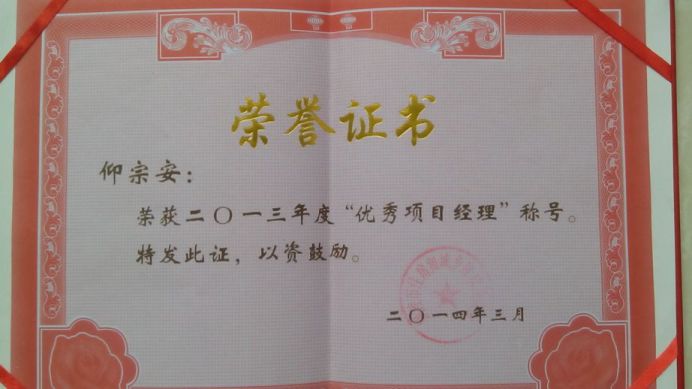 荣誉证书
仰宗安：
荣获二〇一三年度“优秀项目经理”称号。
特发此证，以资鼓励。
二〇一四年三月